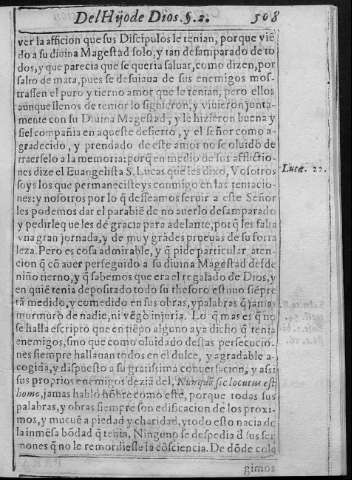 Del Hijo de Dios. §. 2. 508
ver la aficion que sus Discipulos le tenian, porque viẽ
do a su diuina Magestad solo, y tan desamparado de to
dos, y que parecia que se queria saluar, como dizen, por
salto de mata, pues se desuiaua de sus enemigos mos-
trassen el puro y tierno amor que le tenian, pero ellos
aunque llenos de temor lo siguieron, y viuieron junta-
mente con su Diuina Magestad, y le hizieron buena y
fiel compañia en aqueste desierto, y el señor como a-
gradecido, y prendado de este amor no se oluidò de
traerselo a la memoria: porq̃ en medio de sus afflictio-
nes dize el Euangelista S. Lucas que les dixo, Vosotros
soys los que permanecisteys conmigo en las tentacio-
nes: y nosotros por lo q̃ desseamos seruir a este Señor
les podemos dar el parabiẽ de no auerlo desamparado
y pedirle que les dè gracia para adelante, porq̃ les falta
vna gran jornada, y de muy grãdes prueuas de su forta
leza. Pero es cosa admirable, y q̃ pide particular aten-
cion q̃ cõ auer perseguido a su diuina Magestad desde
niño tierno, y q̃ sabemos que era el regalado de Dios, y
en quiẽ tenia depositado todo su thesoro estuuo siẽpre
tã medido, y comedido en sus obras, y palabras q̃ jamas
murmurò de nadie, ni vẽgò injuria. Lo q̃ mas es q̃ no
se halla escripto que en tiẽpo alguno aya dicho q̃ tenia
enemigos, sino que como oluidado destas persecucio-
nes siempre hallauan todos en el dulce, y agradable a-
cogida, y dispuesto a su gratissima conuersacion, y assi
sus proprios enemigos deziã del, Nunquã sic locutus est
homo, jamas hablò hõbre como este, porque todas sus
palabras, y obras siempre son edificacion de los proxi-
mos, y mueuẽ a piedad y charidad, y todo esto nacia de
la inmẽsa bõdad q̃ tenia, Ninguno se despedia d̃ sus ser-
mones q̃ no le remordiesse la cõsciencia. De dõde colq̃
gimos
Lucæ. 22.